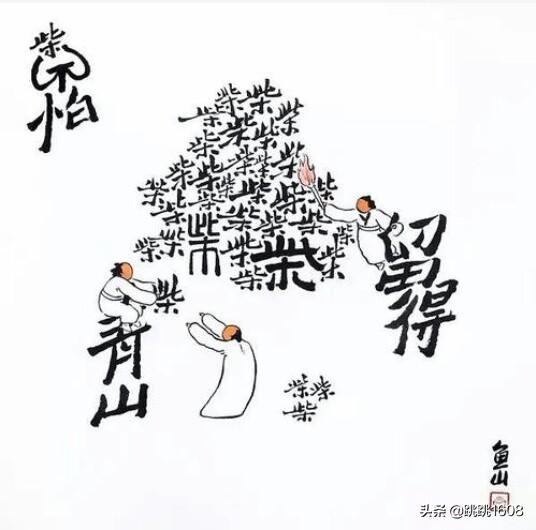 柴
不怕
柴柴
柴柴柴柴
柴柴柴柴
柴柴柴柴柴柴
柴柴柴柴柴
柴柴柴柴柴
柴柴柴柴柴柴
柴柴柴
柴
留得
青山
柴柴
柴
鱼山
头条 @跳跳1608